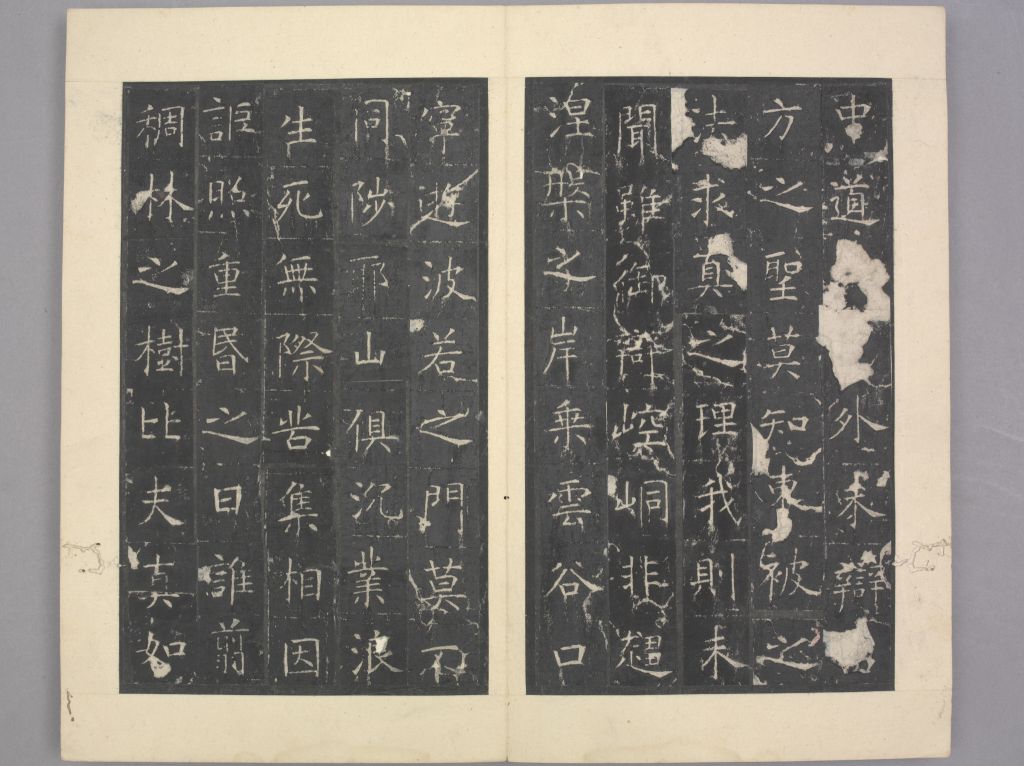 中道外未辯
方之聖莫知東被之
法求真之理我則未
聞雖御辯崆峒非趨
涅槃之岸乘雲谷口
寧遊波若之門莫不
同陟邪山俱沉業浪
生死無際苦集相因
詎照重昏之日誰翦
稠林之樹比夫真如